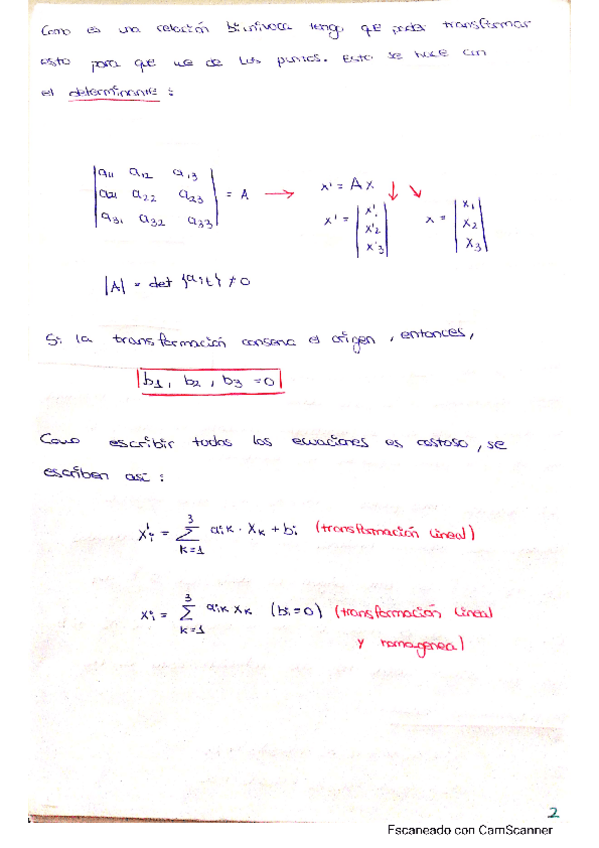 Como es una relación biunívoca tengo que poder transformar
esto para que me de los puntos. Esto se hace con
el determinante :
|a11 a12 a13|
|a21 a22 a23| = A → x' = Ax ↓ ↘
|a31 a32 a33| x' = |x'1 x'2 x'3| x = |x1 x2 x3|
|A| = det {ait} ≠ 0
Si la transformación conserva el origen, entonces,
b1, b2, b3 = 0
Como escribir todas las ecuaciones es costoso, se
escriben así :
x'i = 3 Σ k=1 aik · xk + bi (transformación lineal)
xi = 3 Σ k=1 aik xk (bi = 0) (transformación lineal
y homogenea)
2
Escaneado con CamScanner